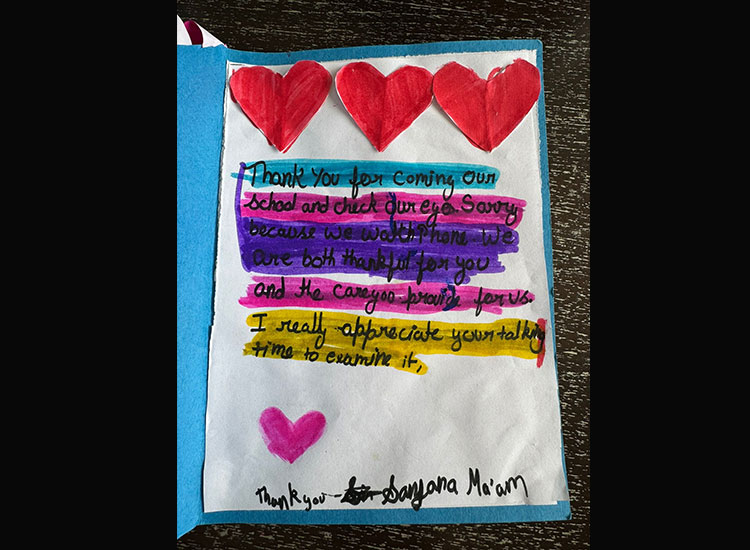 Thank You for coming our
school and check our eye. Sarry
because we watth Phone. We
are both thankful for you
and the careyoo provide for us.
I really appreciate your talking
time to examine it,
Thank you Sanjana Ma'am